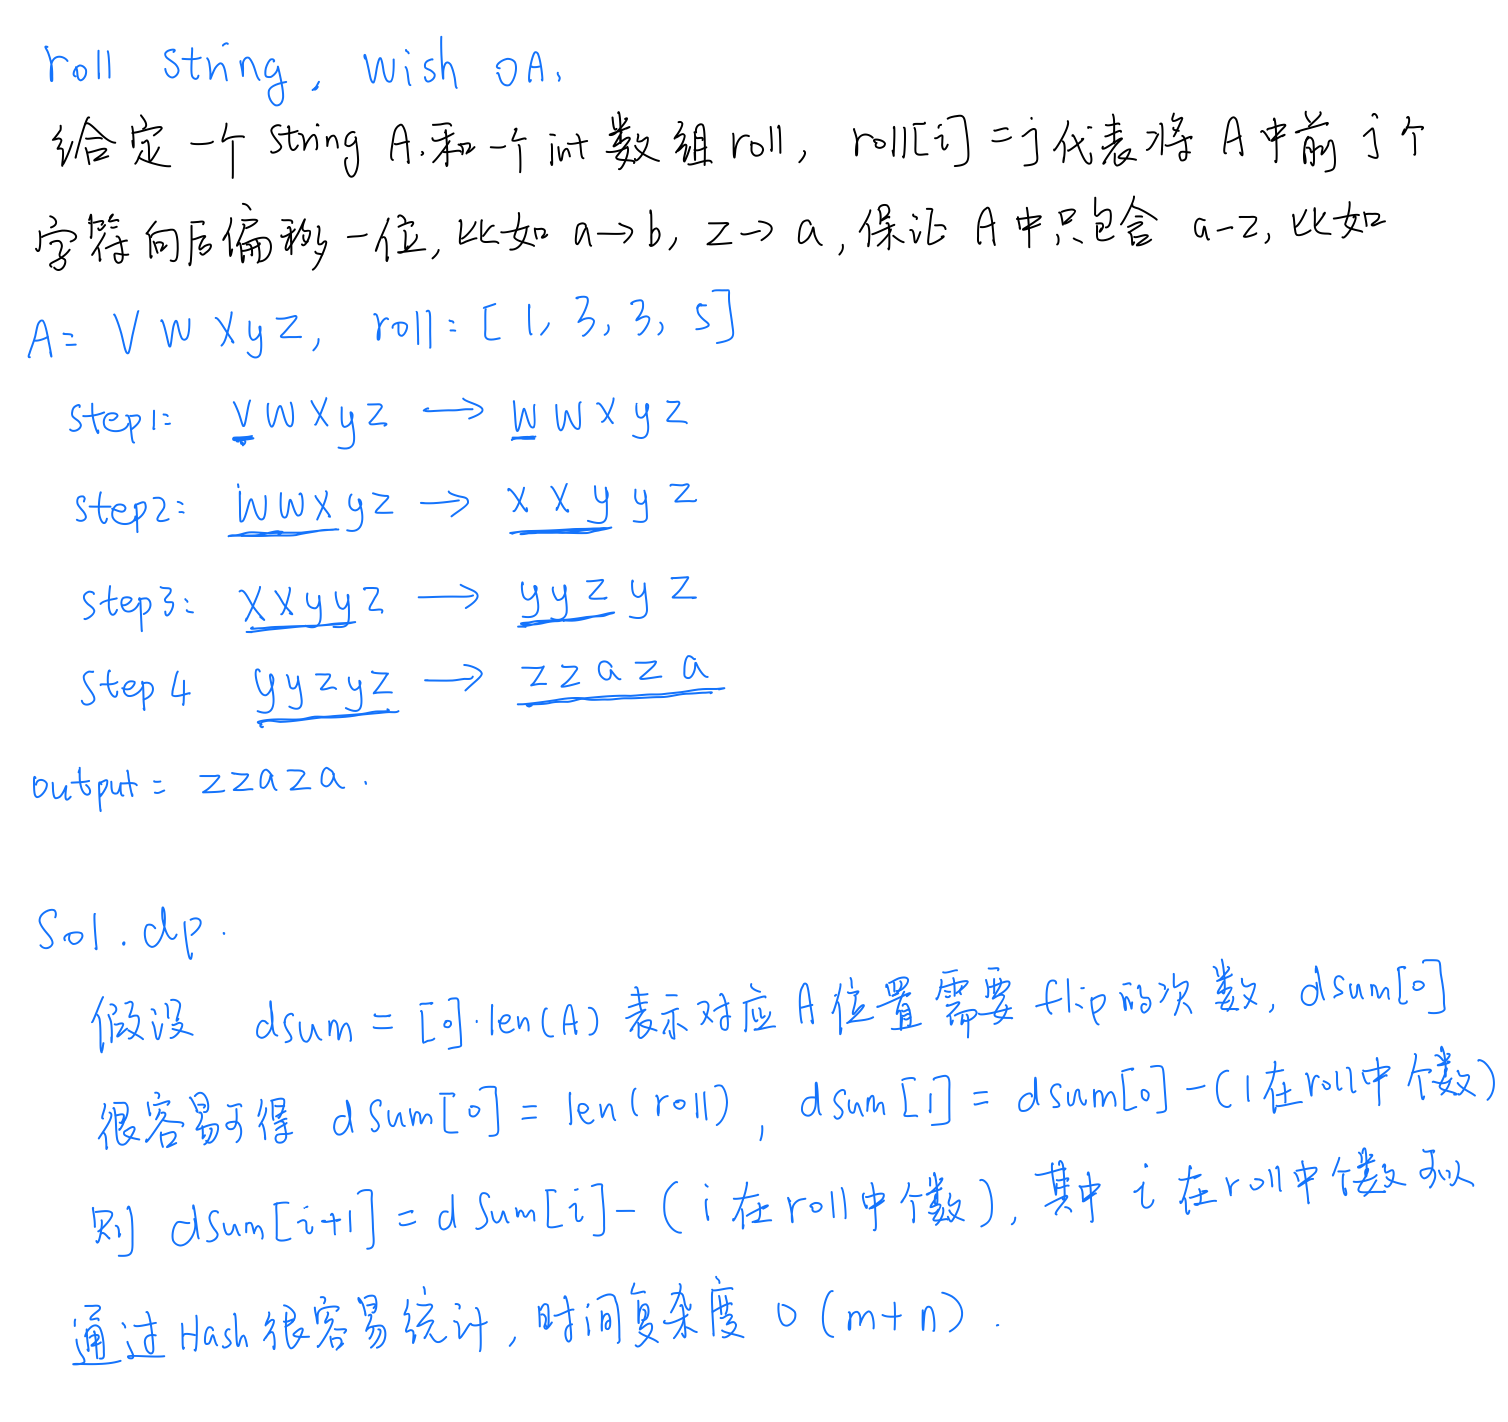 roll string, wish OA.
给定一个 string A.和一个 int 数组 roll, roll[i] = j 代表将 A 中前 j 个
字符向后偏移一位, 比如 a→b, z→a, 保证 A 中只包含 a-z, 比如
A= V W X y Z, roll: [ 1, 3, 3, 5]
Step1: V W X y Z → W W X y Z
Step2: W W X y Z → X X y y Z
Step3: X X y y Z → y y Z y Z
Step 4 y y z y z → z z a z a
output = z z a z a .
Sol . dp .
假设 dsum = [0]·len(A) 表示对应 A 位置需要 flip 的次数, dsum[0]
很容易可得 dsum[0] = len(roll), dsum[1] = dsum[0] - (1在roll中个数)
则 dsum[i+1] = dsum[i] - ( i 在 roll 中个数), 其中 i 在 roll 中个数可以
通过 Hash 很容易统计, 时间复杂度 O (m+n) .